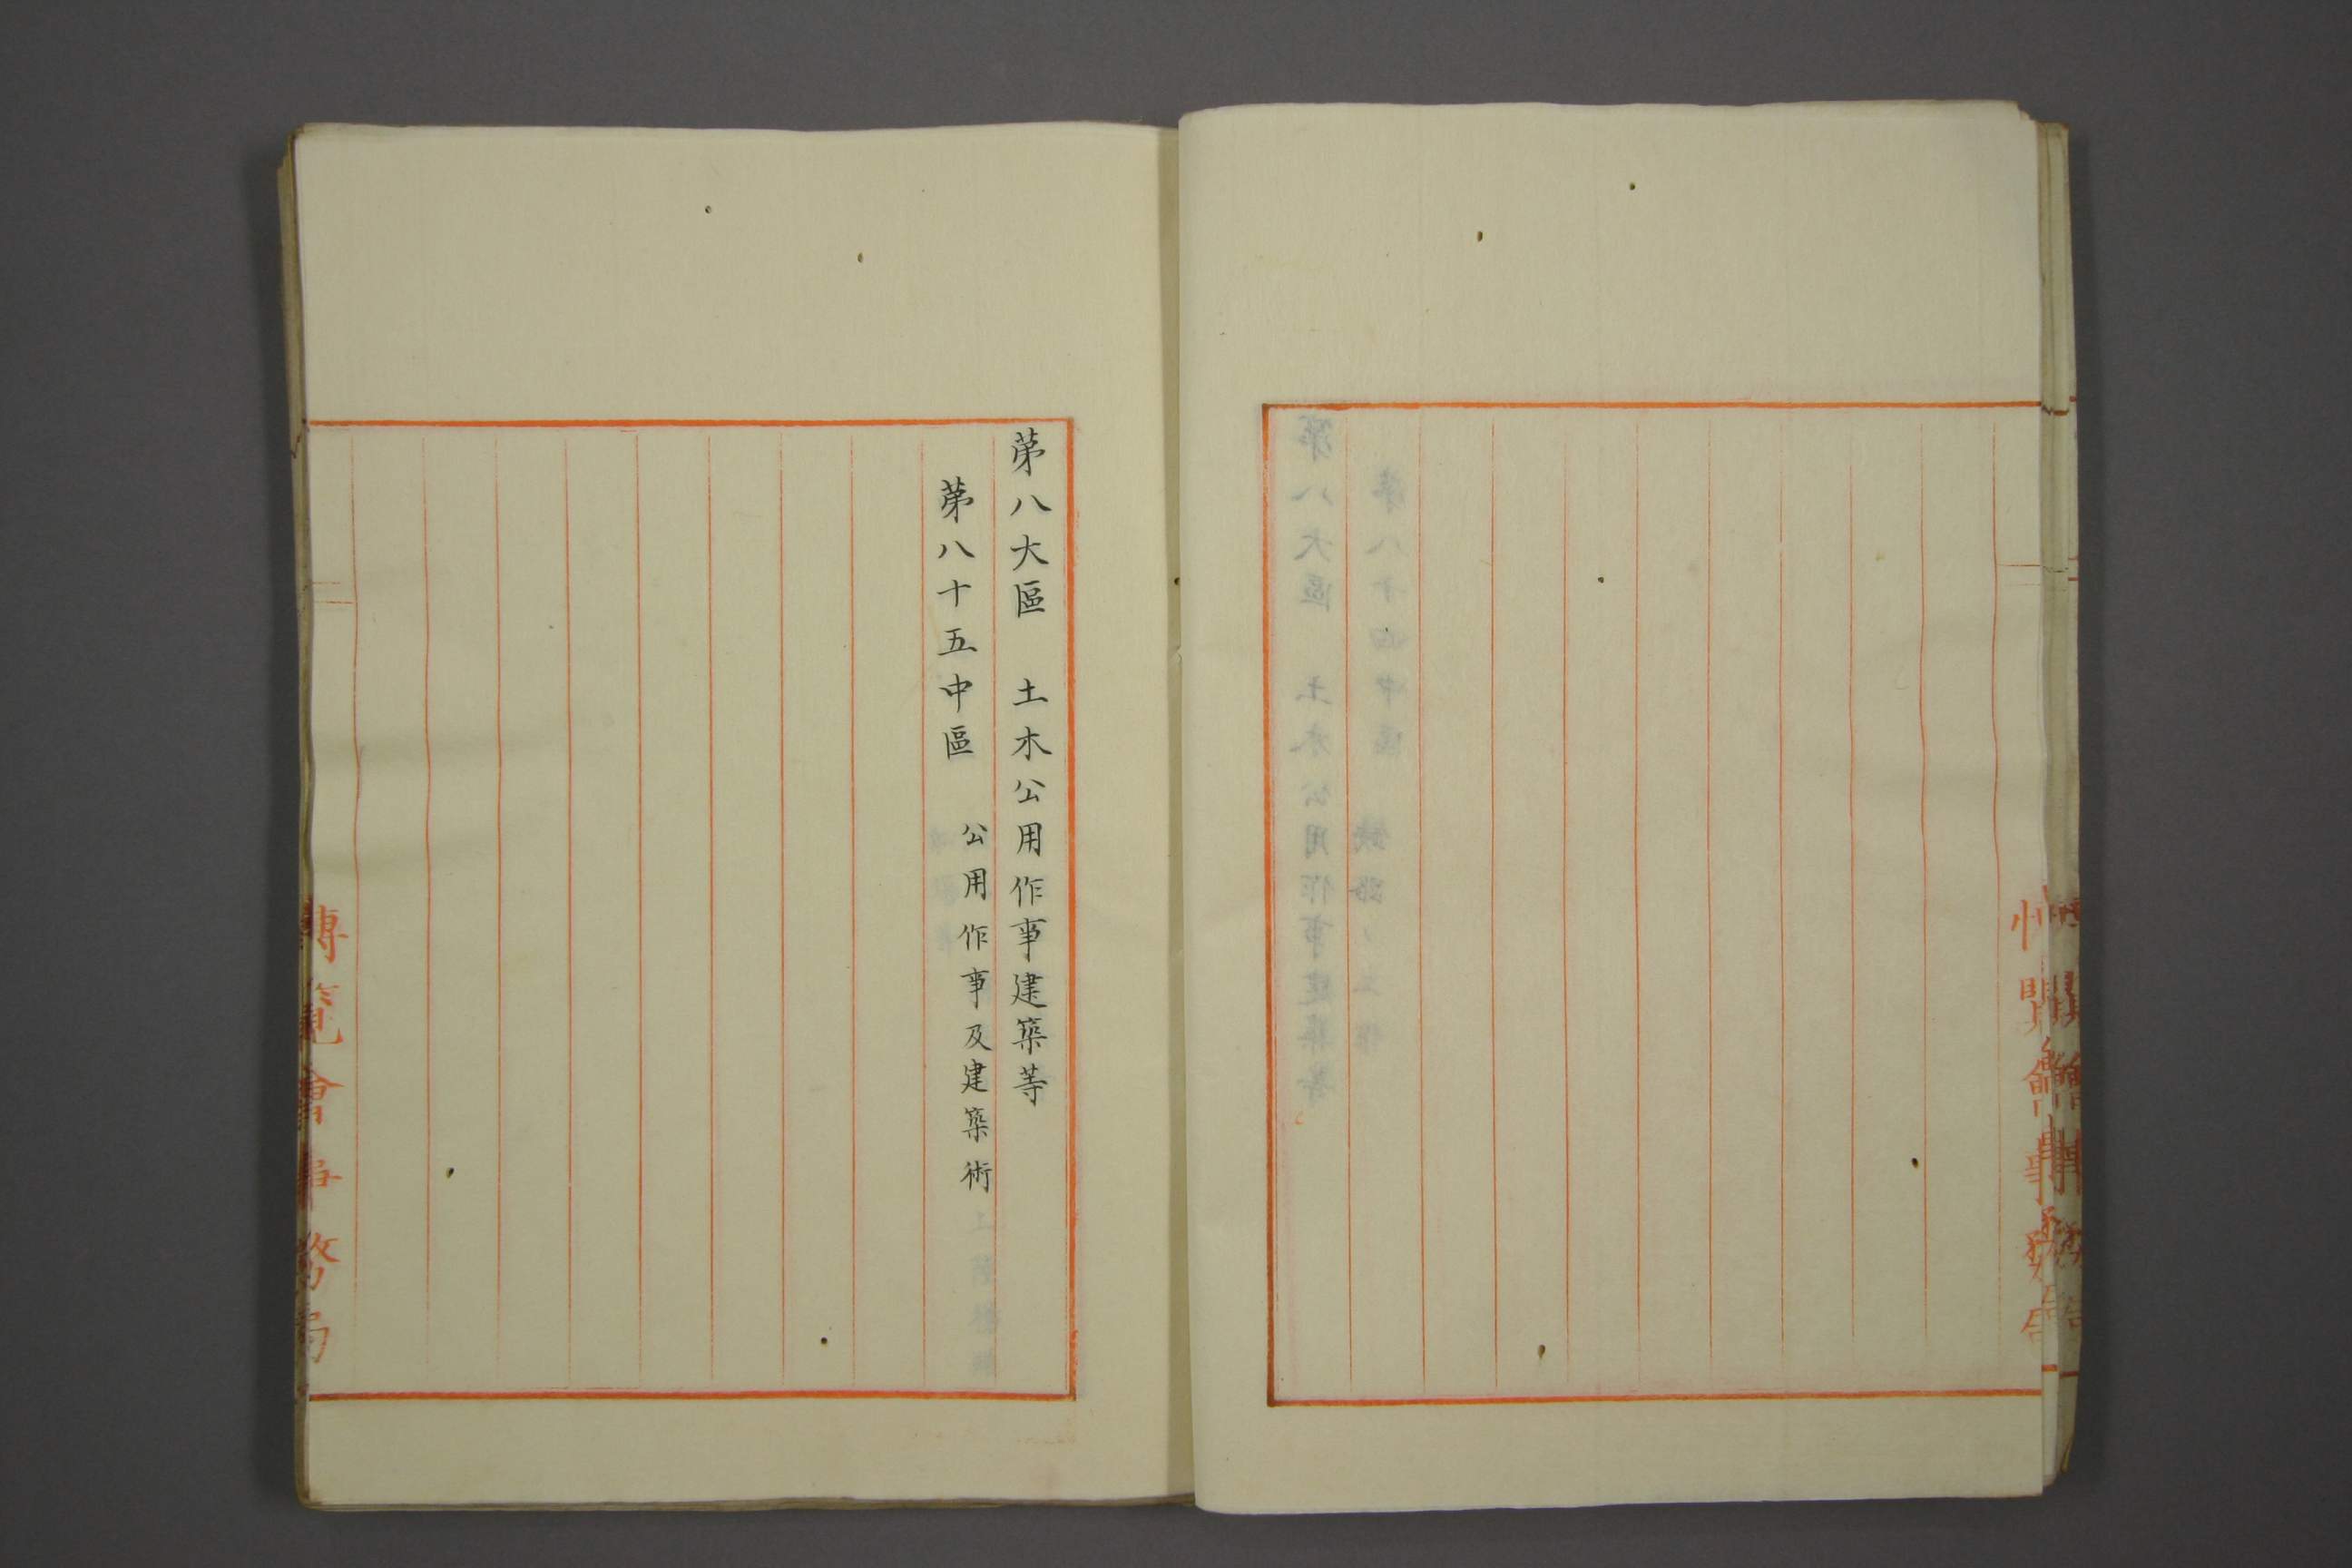 第八大區　土木公用作事建築等
第八十五中區　公用作事及建築術
博覧會事務局